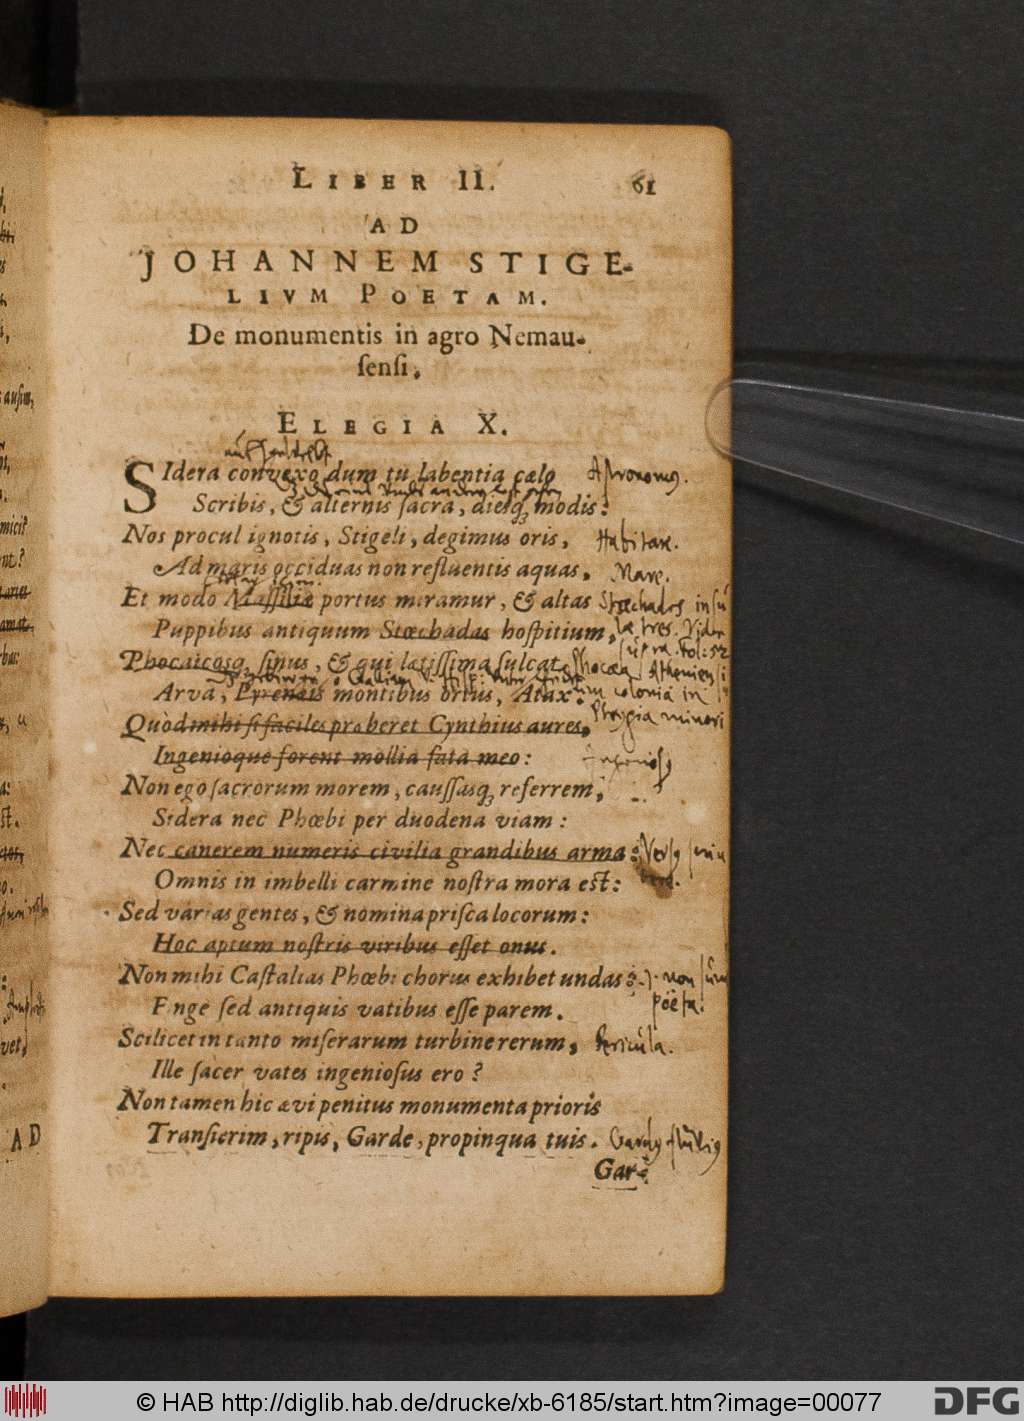 LIBER II. 61
AD
JOHANNEM STIGE-
LIVM POETAM.
De monumentis in agro Nemau-
sensi.
ELEGIA X.
SIdera convexo dum tu labentia cælo
Astronomus.
Scribis, & alternis sacra, diesq; modis:
Nos procul ignotis, Stigeli, degimus oris,
Habitare.
Ad maris occiduas non refluentis aquas,
Mare.
Et modo Massiliæ portus miramur, & altas
Stœchades insu
Puppibus antiquum Stœchadas hospitium,
læ tres. Vide
supra. fol: 52
Phocaicosq; sinus, & qui latissima sulcat
Phocæa Atheniensi
Arva, Pyrenæis montibus ortus, Atax.
um colonia in
Quòd mihi si faciles præberet Cynthius aures,
Phrygia minori
Ingenioque forent mollia fata meo:
Non ego sacrorum morem, caussasq; referrem,
Sidera nec Phœbi per duodena viam:
Nec canerem numeris civilia grandibus arma:
Omnis in imbelli carmine nostra mora est:
Sed varias gentes, & nomina prisca locorum:
Hoc aptum nostris viribus esset onus.
Non mihi Castalias Phœbi chorus exhibet undas:
non sum
poëta.
Enge sed antiquis vatibus esse parem.
Scilicet in tanto miserarum turbine rerum,
Pericula.
Ille sacer vates ingeniosus ero?
Non tamen hic ævi penitus monumenta prioris
Transierim, ripis, Garde, propinqua tuis.
Gardus fluvius
Gar-
AD
© HAB http://diglib.hab.de/drucke/xb-6185/start.htm?image=00077
DFG